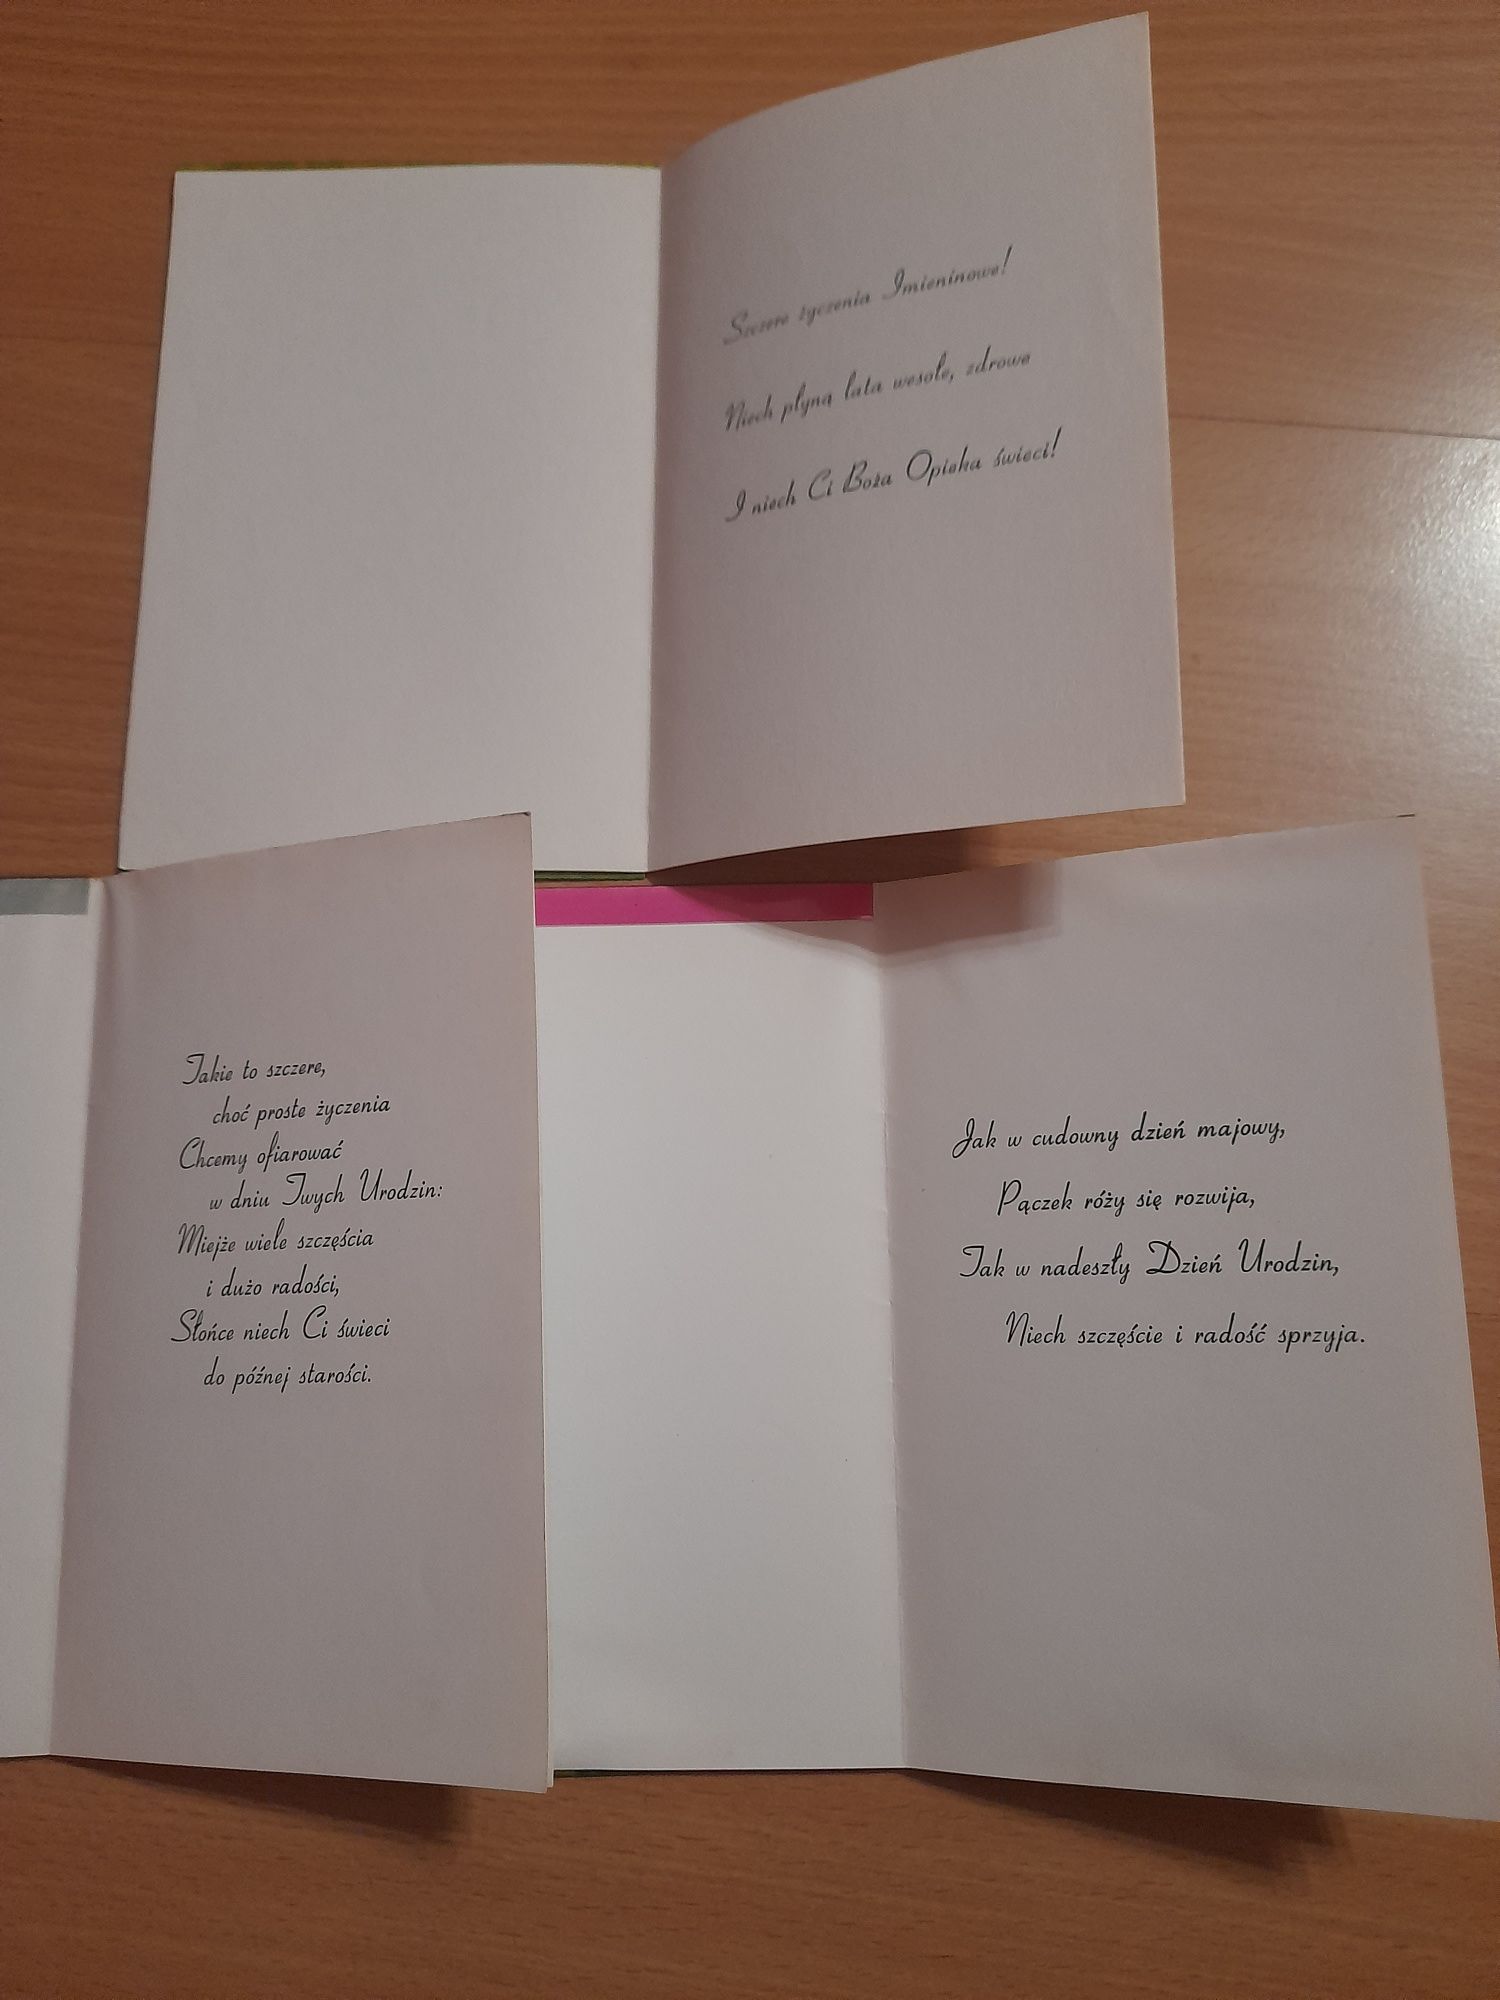 Szczere życzenia Imieninowe!
Niech płyną lata wesołe, zdrowe
I niech Ci Boża Opieka świeci!
Takie to szczere,
choć proste życzenia
Chcemy ofiarować
w dniu Twych Urodzin:
Miejże wiele szczęścia
i dużo radości,
Słońce niech Ci świeci
do późnej starości.
Jak w cudowny dzień majowy,
Pączek róży się rozwija,
Tak w nadeszły Dzień Urodzin,
Niech szczęście i radość sprzyja.